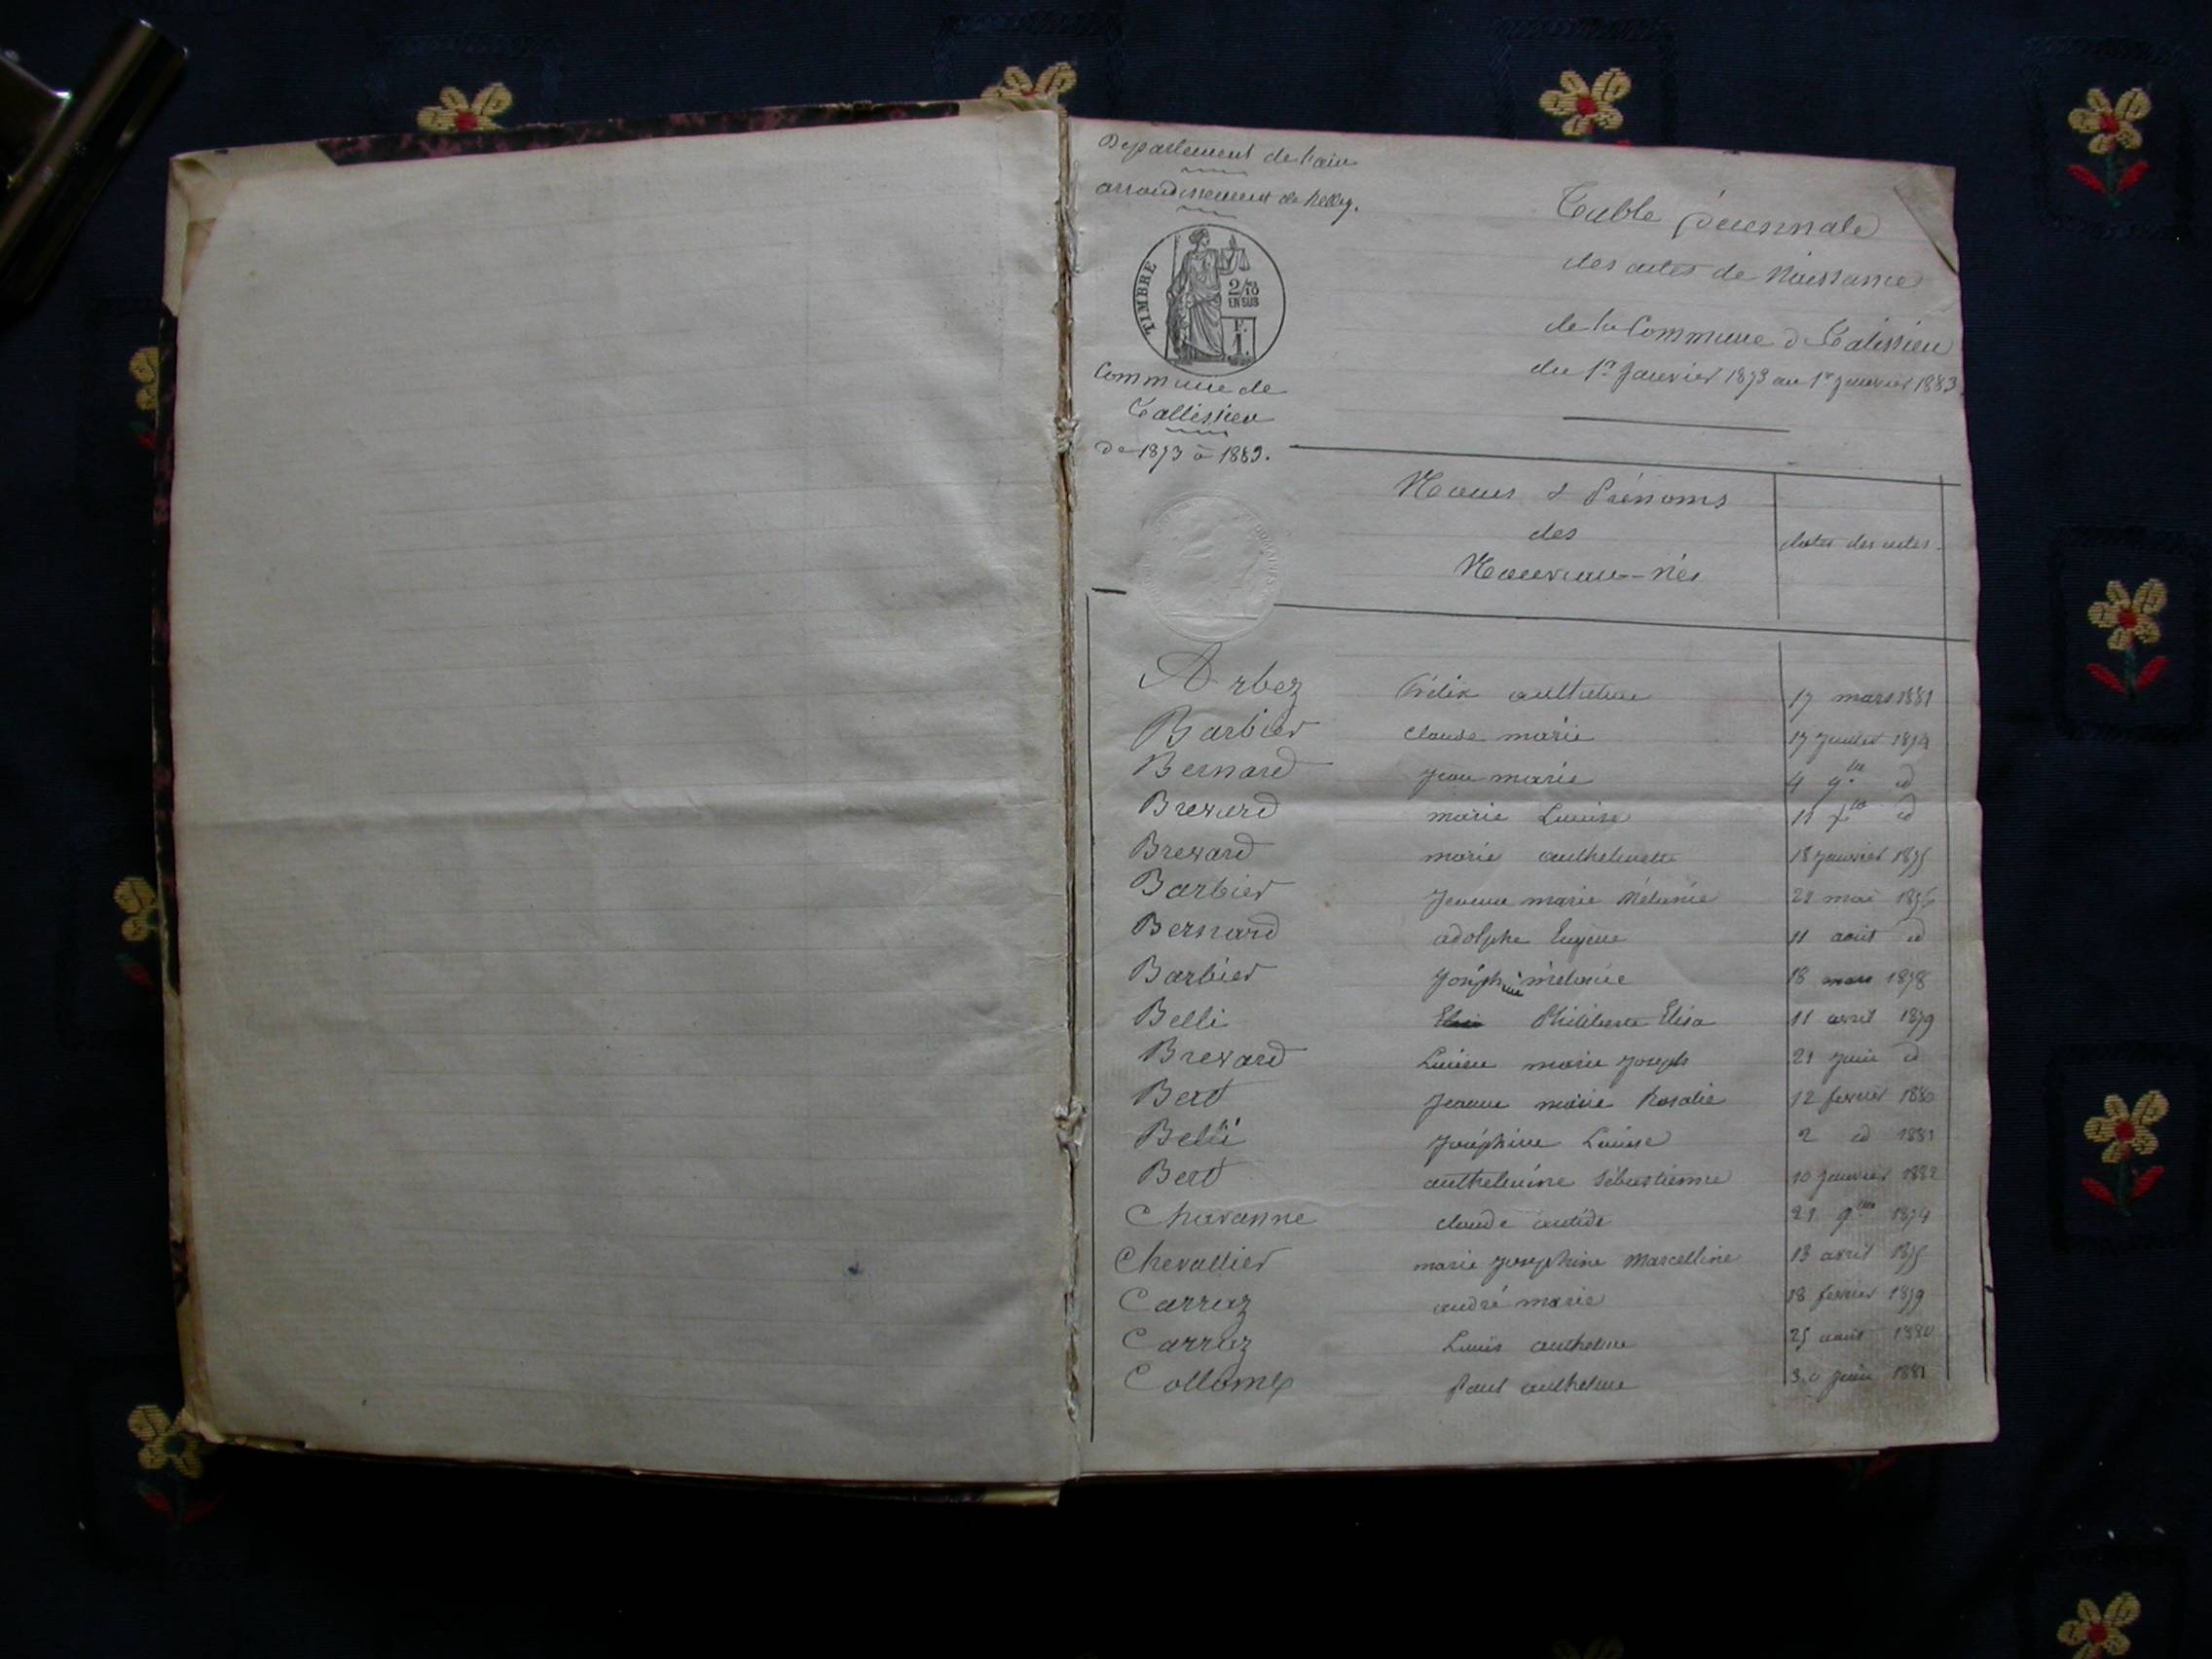 Departement de l'ain
arrondissement de Belley.
TIMBRE
2/10
EN SUS
F.
1.
Commune de
Tallissieu
de 1873 à 1883.
Table décennale
des actes de Naissance
de la Commune de Talissieu
du 1er Janvier 1873 au 1er janvier 1883.
Noms & Prénoms
des
Nouveau-nés
dates des actes.
Arbez Félix anthelme 17 mars 1881
Barbier claude marie 17 juillet 1874
Bernard jean marie 4 9bre id
Brevard marie Louise 11 id
Brevard marie anthelmette 18 janvier 1875
Barbier jeanne marie Mélanie 29 mai 1876
Bernard adolphe Eugène 11 août id
Barbier Joséphine mélanie 18 mars 1878
Belli Philiberte Elisa 11 avril 1879
Brevard Lucien marie joseph 21 juin id
Bert jeanne marie Rosalie 12 fevrier 1880
Belli joséphine Louise 2 id 1881
Bert anthelmine Sébastienne 10 janvier 1882
Chavanne claude 21 9bre 1874
Chevallier marie josephine Marcelline 13 avril 1875
Carraz andré marie 18 fevrier 1879
Carraz Louis anthelme 25 août 1880
Collomb Paul anthelme 30 juin 1881